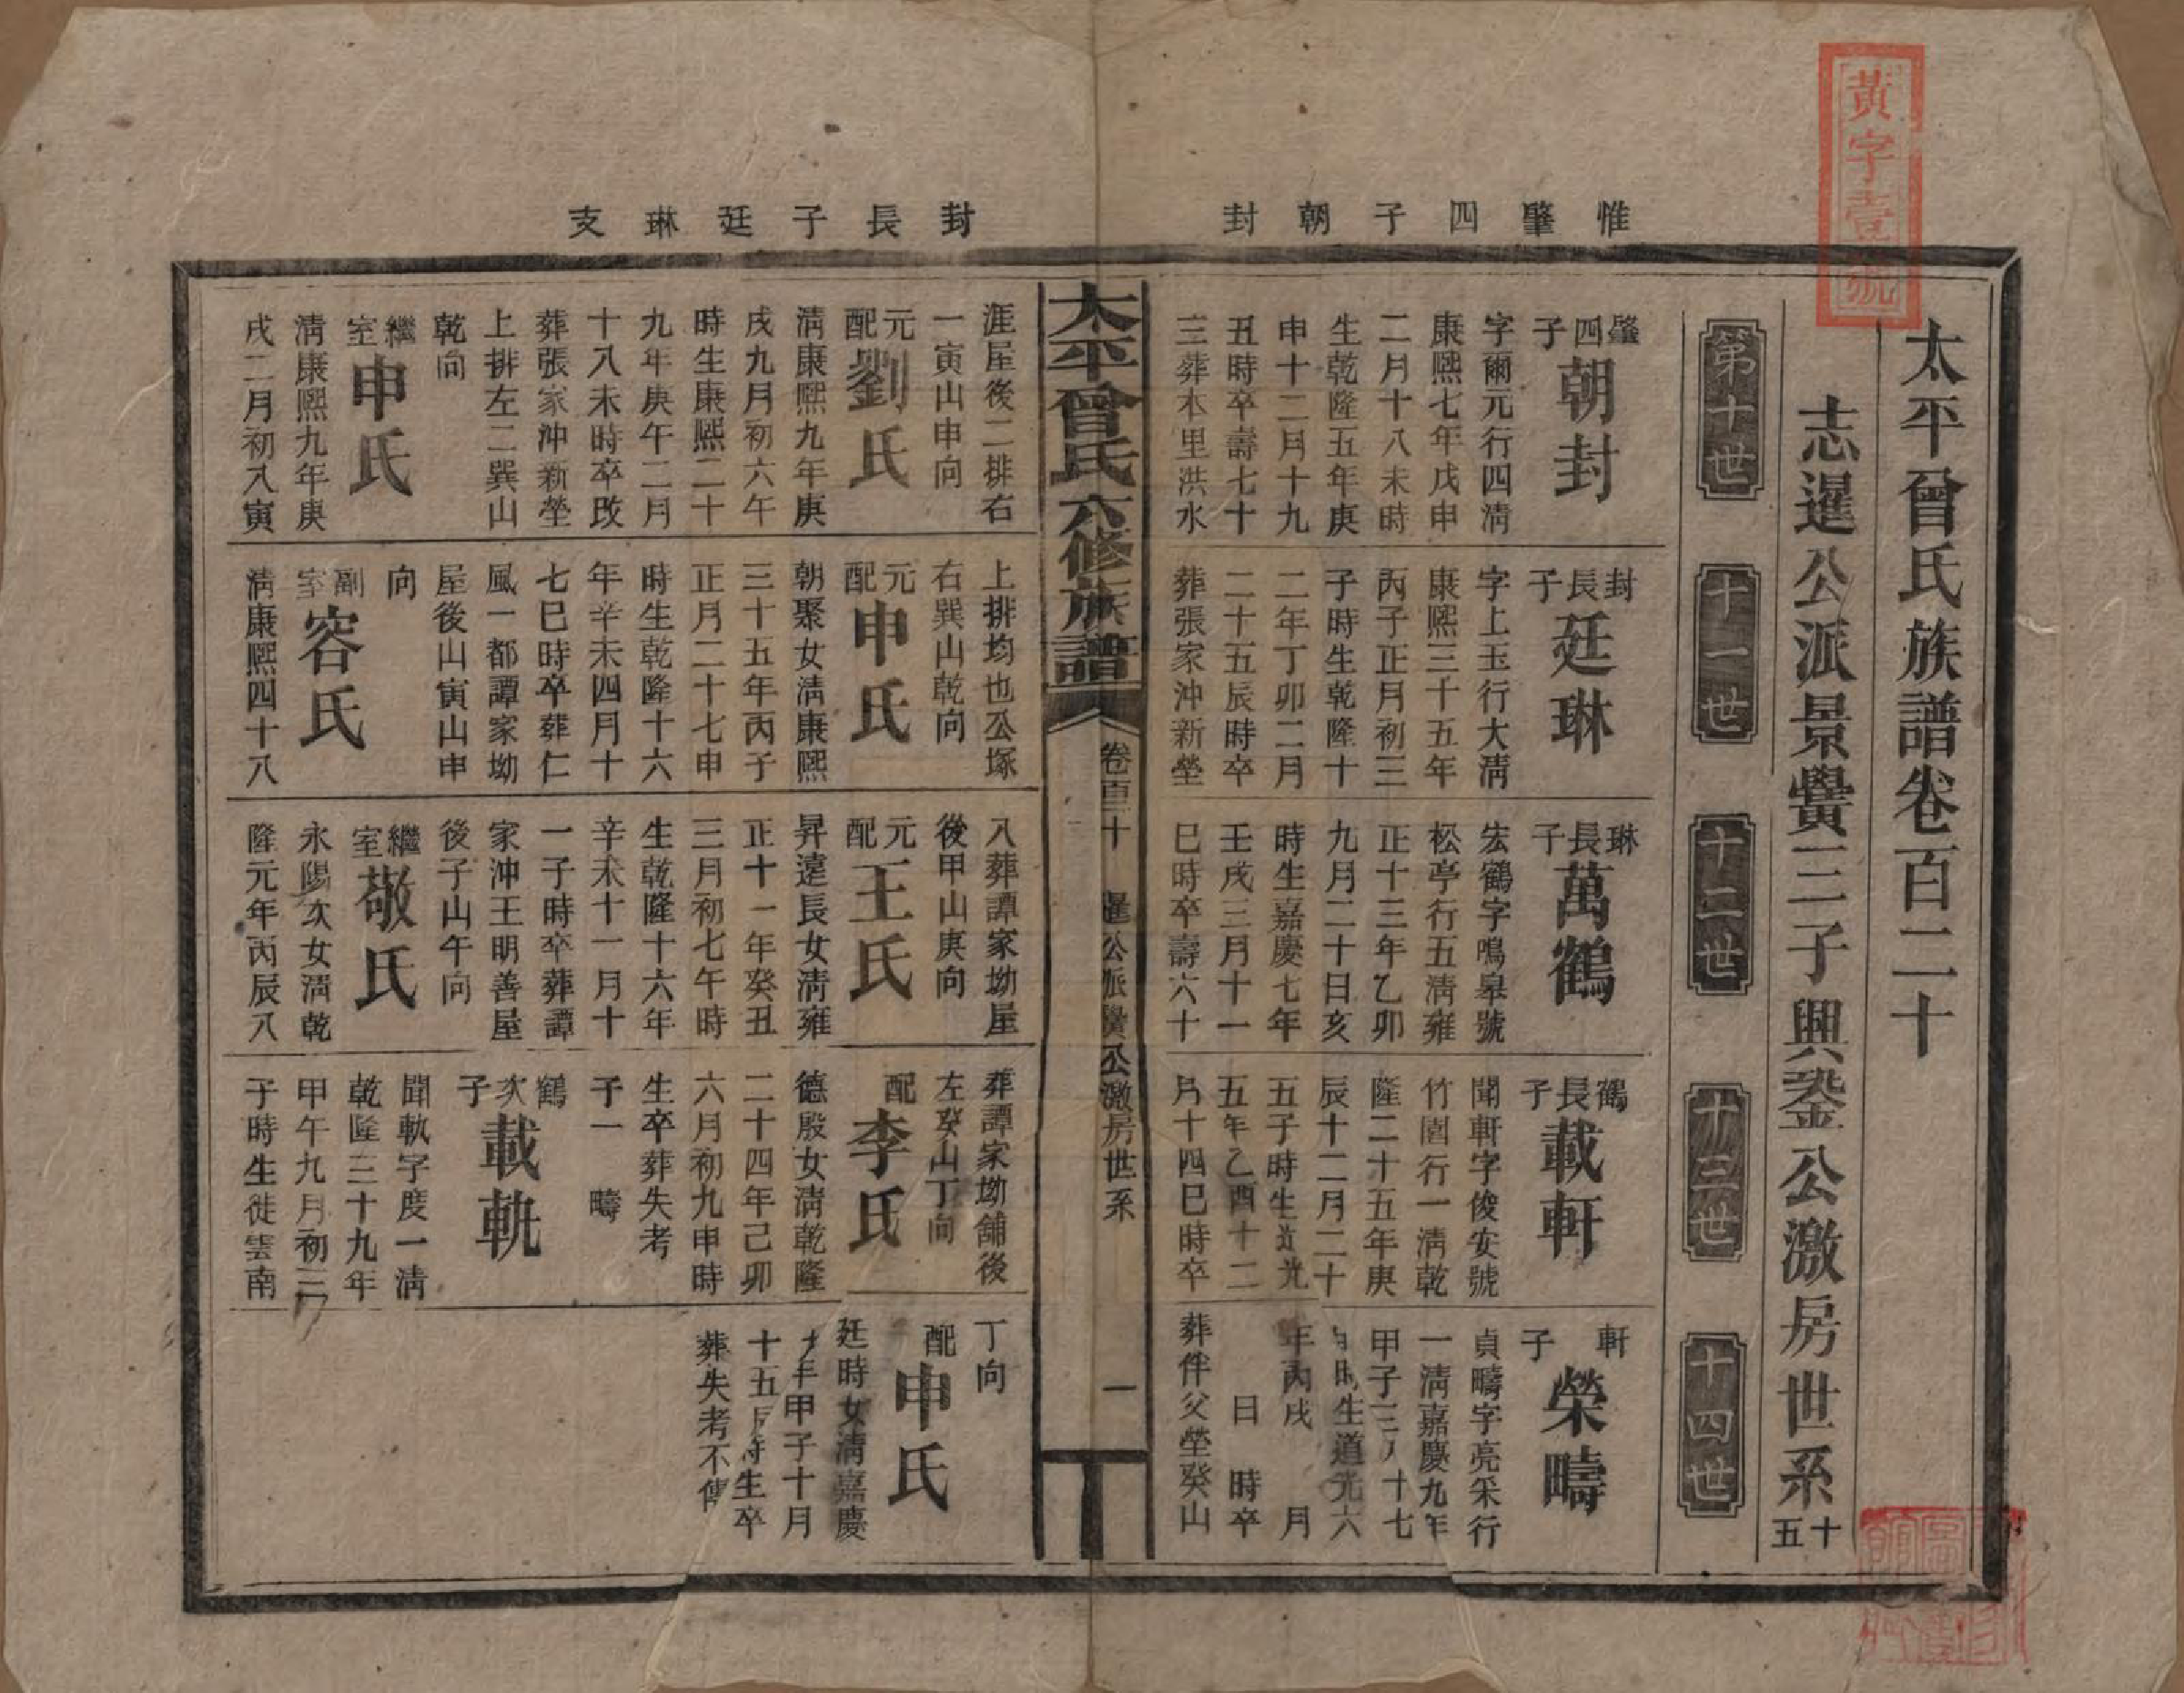 黃字壹號
太平曾氏族譜卷百二十
志暹公派景黌三子興鋆公激房世系十五
第十世
十一世
十二世
十三世
十四世
惟肇四子朝封
肇四子朝封
字爾元行四淸
康熙七年戊申
二月十八未時
生乾隆五年庚
申十二月十九
丑時卒壽七十
三葬本里洪水
封長子廷琳
字上玉行大淸
康熙三十五年
丙子正月初三
子時生乾隆十
二年丁卯二月
二十五辰時卒
葬張家沖新塋
琳長子萬鶴
宏鶴字鳴皋號
松亭行五淸雍
正十三年乙卯
九月二十日亥
時生嘉慶七年
壬戌三月十一
巳時卒壽六十
鶴長子載軒
聞軒字俊安號
竹園行一淸乾
隆二十五年庚
辰十二月二十
五子時生道光
五年乙酉十二
月十四巳時卒
軒子榮疇
貞疇字亮采行
一淸嘉慶九年
甲子三月十七
時生道光六
年丙戌 月
日 時卒
葬伴父塋癸山
太平曾氏六修族譜
卷百二十 暹公派黌公激房世系 一
封長子廷琳支
涯屋後二排右
一寅山申向
元配劉氏
淸康熙九年庚
戌九月初六午
時生康熙二十
九年庚午二月
十八未時卒改
葬張家沖新塋
上排左二巽山
乾向
繼室申氏
淸康熙九年庚
戌二月初八寅
上排均也公塚
右巽山乾向
元配申氏
朝聚女淸康熙
三十五年丙子
正月二十七申
時生乾隆十六
年辛未四月十
七巳時卒葬仁
風一都譚家坳
屋後山寅山申
向
副室容氏
淸康熙四十八
八葬譚家坳屋
後甲山庚向
元配王氏
昇遠長女淸雍
正十一年癸丑
三月初七午時
生乾隆十六年
辛未十一月十
一子時卒葬譚
家沖王明善屋
後子山午向
繼室敬氏
永陽次女淸乾
隆元年丙辰八
葬譚家坳舖後
左癸山丁向
配李氏
德殷女淸乾隆
二十四年己卯
六月初九申時
生卒葬失考
子一 疇
鶴次子載軏
聞軏字度一淸
乾隆三十九年
甲午九月初三
子時生徙雲南
丁向
配申氏
廷時女淸嘉慶
九年甲子十月
十五 時生卒
葬失考不傳